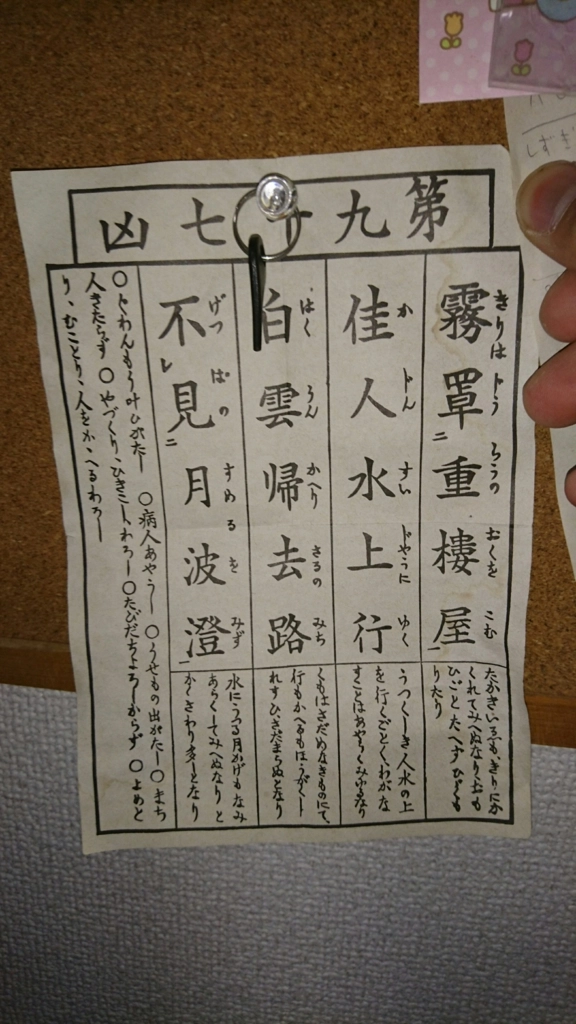 第九十七凶
霧罩二重樓屋一
きりは じう ろうの おくを こむ
たかきいへも、きりにか
くれてみへぬなり、おも
ひごとたへず
りたり
佳人水上行
か じん すい じやうに ゆく
うつくしき人水の上
を行くごとくわがな
すことはあやうくみゆるなり
白雲帰去路
はく うん かへり さるの みち
くもはさだめなきものにて、
行もかへるもはうがくし
れずひきだまらぬとなり
不レ見二月波澄一
げつ ぱの すめるを みず
水にうつる月かげもなみ
あらくしてみへぬなりと
かくさわり多しとなり
○ぐわんもう叶ひがたし ○病人あやうし ○うせもの出がたし ○まち
人きたらず ○やづくり、ひきこしわろし ○たびだちよろしからず ○よめと
り、むことり、人をかゝへるわろし